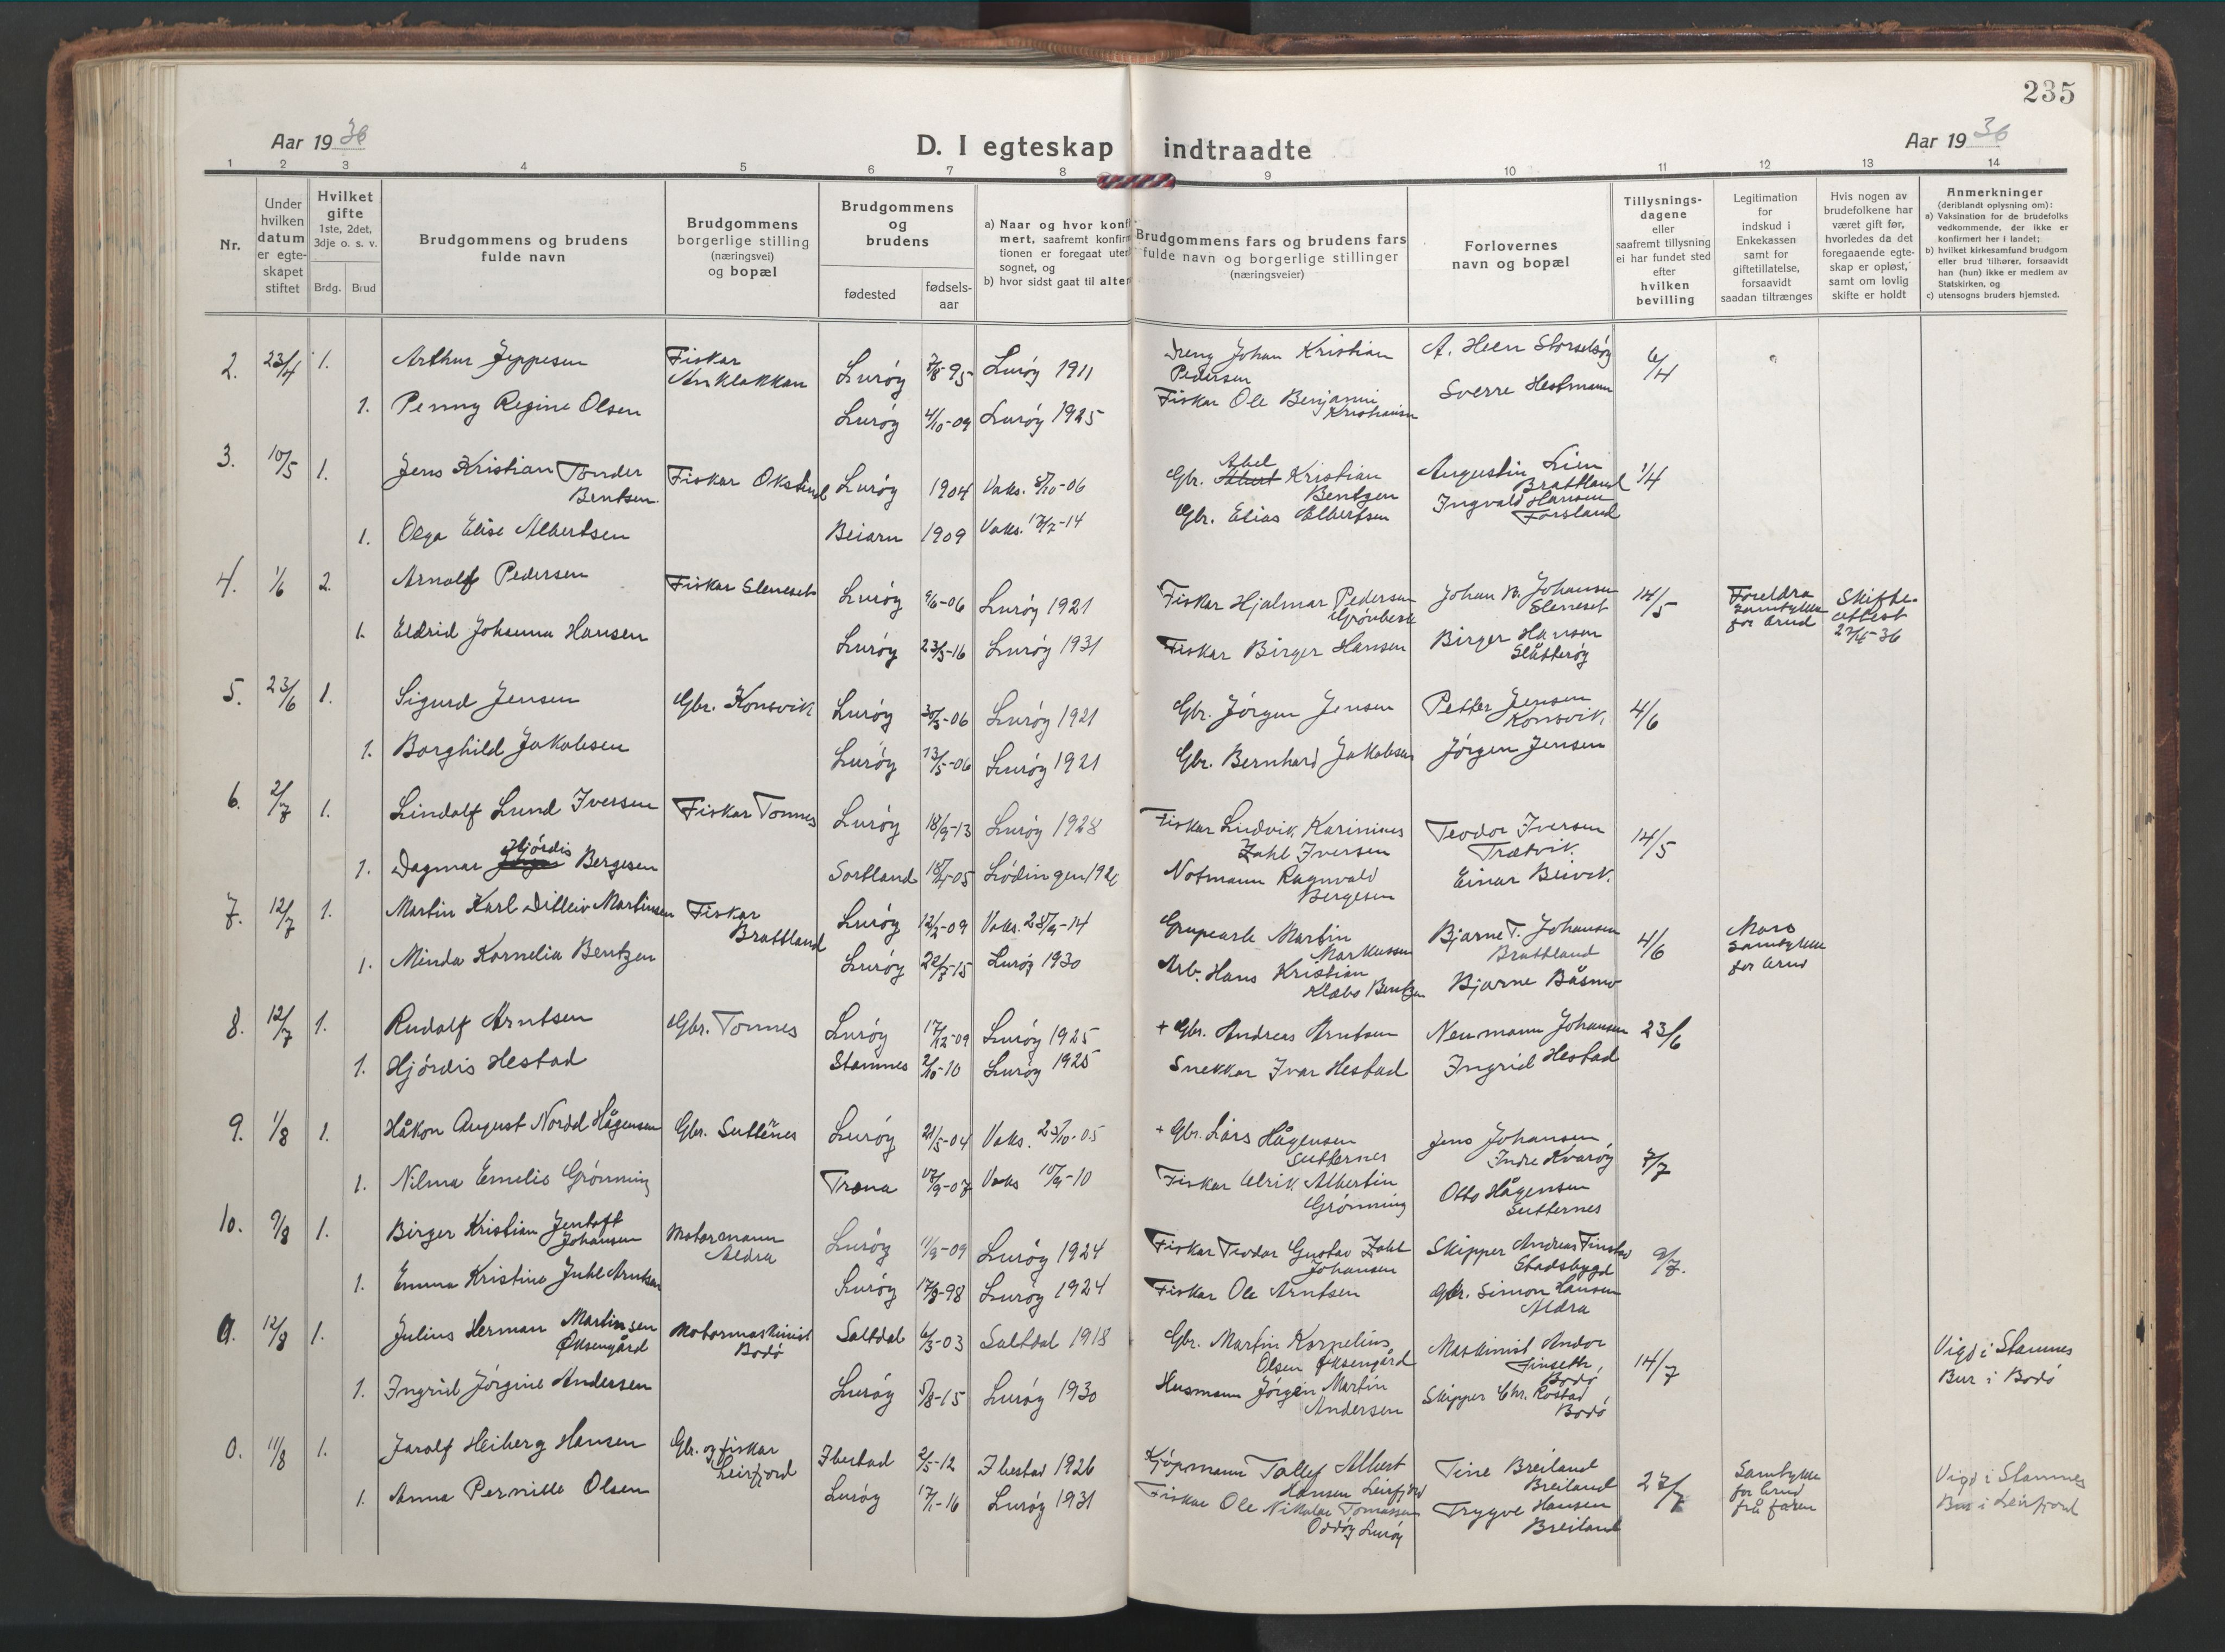 235
Aar 1936
D. I egteskap indtraadte
Aar 1936
1 2 3 4 5 6 7 8 9 10 11 12 13 14
Nr.
Under hvilken datum er egte-skapet stiftet
Hvilket gifte 1ste, 2det, 3dje o. s. v.
Brdg. Brud
Brudgommens og brudens fulde navn
Brudgommens borgerlige stilling (næringsvei) og bopæl
Brudgommens og brudens
fødested
fødsels-aar
a) Naar og hvor konfi
mert, saafremt konfirm
tionen er foregaat uten
sognet, og
b) hvor sidst gaat til alter
Brudgommens fars og brudens fars fulde navn og borgerlige stillinger (næringsveier)
Forlovernes navn og bopæl
Tillysnings-dagene eller saafremt tillysning ei har fundet sted efter hvilken bevilling
Legitimation for indskud i Enkekassen samt for giftetillatelse, forsaavidt saadan tiltrænges
Hvis nogen av brudefolkene har været gift før, hvorledes da det foregaaende egte-skap er opløst, samt om lovlig skifte er holdt
Anmerkninger
(deriblandt oplysning om):
a) Vaksination for de brudefolks vedkommende, der ikke er konfirmert her i landet;
b) hvilket kirkesamfund brudgom eller brud tilhører, forsaavidt han (hun) ikke er medlem av Statskirken, og
c) utensogns bruders hjemsted.
2. 23/4 1. Arthur Jeppesen Fiskar Anklakkan Lurøy 7/8-95 Lurøy 1911 Dreng Johan Kristian Pedersen A. Heen Storselsøy 6/4
1. Penny Regine Olsen Lurøy 4/10-09 Lurøy 1925 Fiskar Ole Benjamin Kristiansen Sverre Hestmann
3. 10/5 1. Jens Kristian Tønder Bentsen Fiskar Okstind Lurøy 1904 Vaks. 8/10-06 Gbr. Abel Kristian Bentzen Augustin Lien Brattland 1/4
1. Olga Elise Albertsen Beiarn 1909 Vaks. 17/7-14 Gbr. Elias Albertsen Ingvald Hansen Forsland
4. 1/6 2. Arnolf Pedersen Fiskar Sleneset Lurøy 9/6-06 Lurøy 1921 Fiskar Hjalmar Pedersen Grønbeck Johan N. Johansen Sleneset 14/5 Foreldra samtykke for brud Skifte-attest 27/5-36
1. Eldrid Johanna Hansen Lurøy 23/3-16 Lurøy 1931 Fiskar Birger Hansen Birger Hansen Slåtterøy
5. 23/6 1. Sigurd Jensen Gbr. Konsvik Lurøy 30/3-06 Lurøy 1921 Gbr. Jørgen Jensen Petter Jensen Konsvik. 4/6
1. Borghild Jakobsen Lurøy 13/5-06 Lurøy 1921 Gbr. Bernhard Jakobsen Jørgen Jensen
6. 2/7 1. Lindolf Lund Iversen Fiskar Tonnes Lurøy 18/9-13 Lurøy 1928 Fiskar Ludvik Karinius Zahl Iversen Teodor Iversen Trætvik. 14/5
1. Dagmar Hjørdis Bergesen Sortland 05 Lødingen Notmann Ragnvald Bergesen Einar Beivik.
7. 12/7 1. Martin Karl Ditleiv Martinsen Fiskar Brattland Lurøy 12/2-09 Vaks. 28/9-14 Grupearb Martin Markussen Bjarne T. Johansen Brattland 4/6 Mors samtykke for brud
1. Minda Kornelia Bentzen Lurøy 22/7-15 Lurøy 1930 Arb. Hans Kristian Klæbo Bentzen Bjarne Båsmo
8. 12/7 1. Rudolf Arntsen Gbr. Tonnes Lurøy 17/12-09 Lurøy 1925 + Gbr. Andreas Arntsen Neumann Johansen 23/6
1. Hjørdis Hestad Stamnes 2/10-10 Lurøy 1925 Snekkar Ivar Hestad Ingrid Hestad
9. 1/8 1. Håkon August Nordal Hågensen Gbr. Sutternes Lurøy 21/5-04 Vaks. 25/10-05 + Gbr. Lars Hågensen Sutternes Jens Johansen, Indre Kvarøy 7/7
1. Nilma Emelie Grønning Træna 12/9-07 Vaks 10/9-10 Fiskar Ulrik Albertin Grønning Otto Hågensen Sutternes
10. 9/8 1. Birger Kristian Jentoft Johansen Motormann Aldra Lurøy 11/9-09 Lurøy 1924 Fiskar Teodor Gustav Zahl Johansen Skipper Andreas Finstad Stadsbygd 9/7.
1. Emma Kristine Juhl Arntsen Lurøy 17/8-98 Lurøy 1924 Fiskar Ole Arntsen Gbr. Simon Hansen Aldra
0. 12/8 1. Julius Herman Martinsen Øksengård Motormaskinist Bodø Saltdal 6/3-03 Saltdal 1918 Gbr. Martin Kornelius Olsen Øksengård Maskinist Andor Finseth, Bodø 14/7 Vigd i Stamnes Bur i Bodø
1. Ingrid Jørgine Andersen Lurøy 5/8-15 Lurøy 1930 Husmann Jørgen Martin Andersen Skipper Chr. Rostad, Bodø
0. 11/8 1. Jarolf Heiberg Hansen Gbr. og fiskar Leirfjord Ibestad 2/5-12 Ibestad 1926 Kjøpmann Tollef Albert Hansen Leirfjord Tine Breiland Breiland 27/7 Samtykke for brud frå faren Vigd i Stamnes Bur i Leirfjord
1. Anna Pernille Olsen Lurøy 17/1-16 Lurøy 1931 Fiskar Ole Nikolai Tomassen Oddøy Lurøy Trygve Hansen Breiland